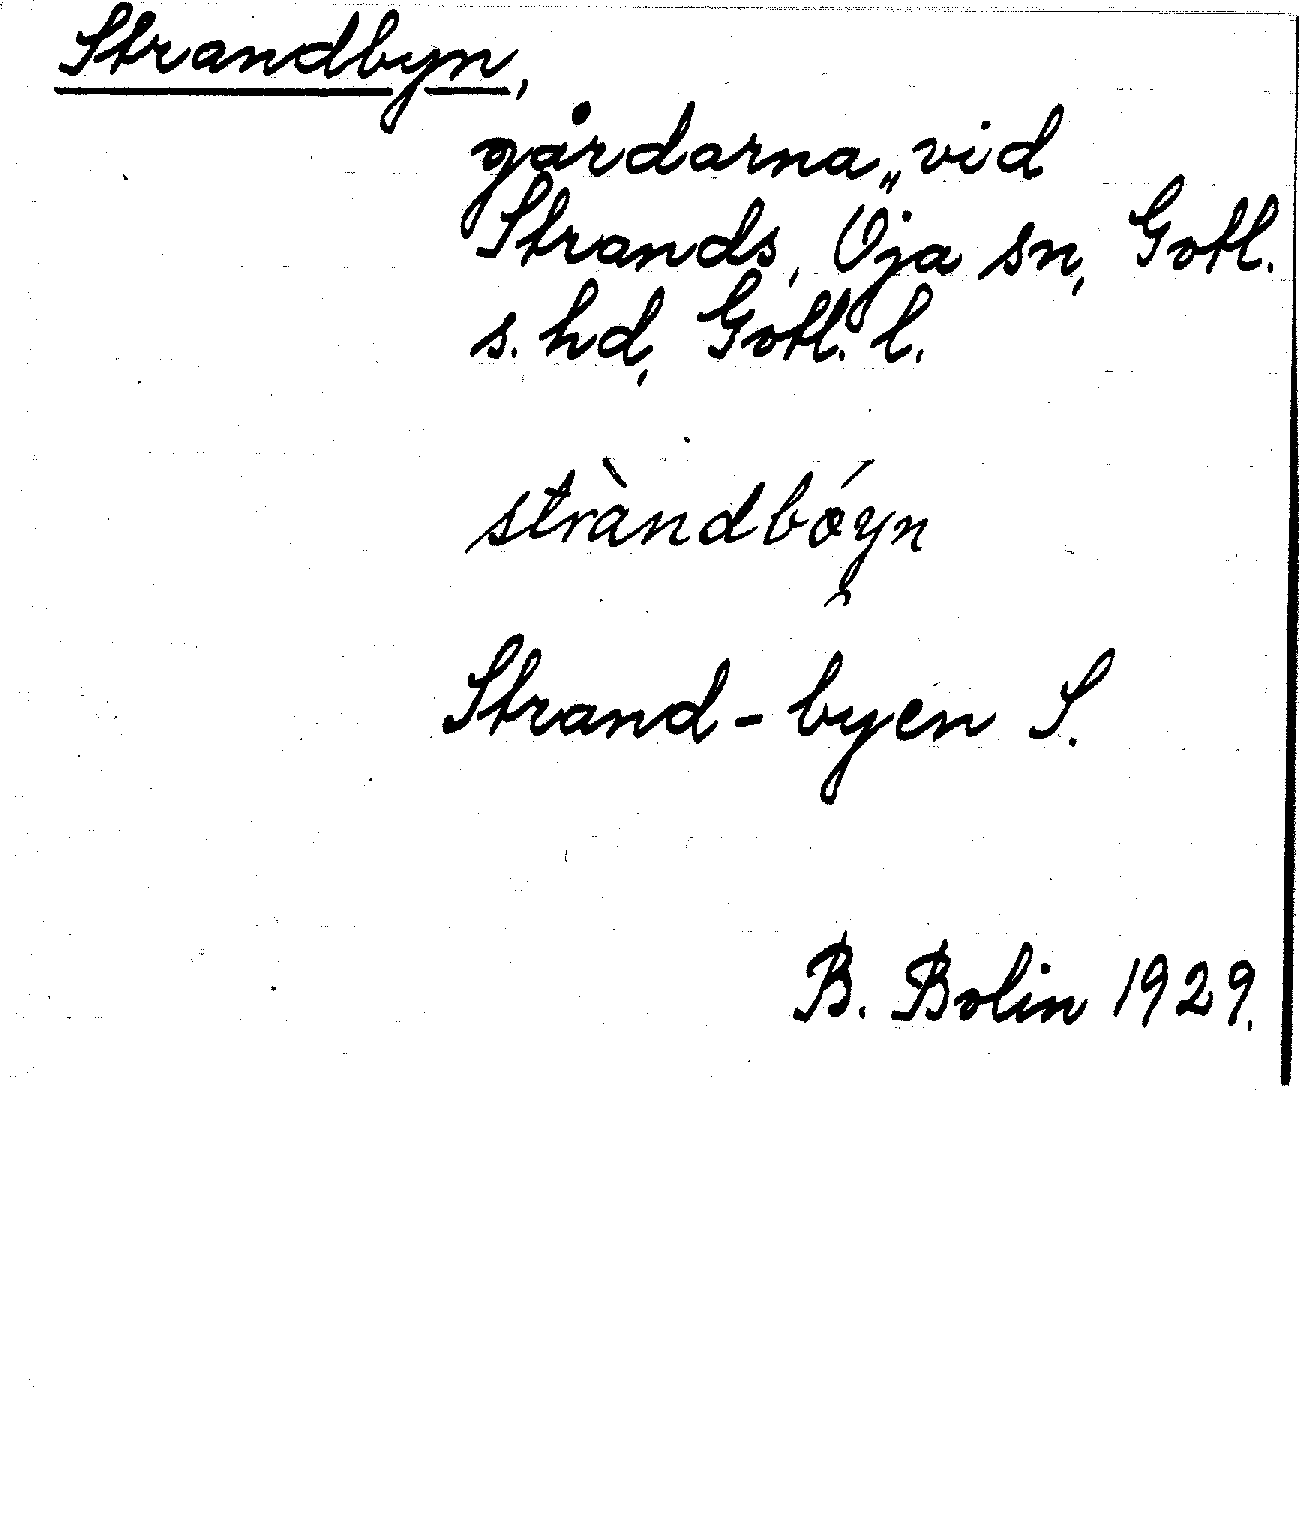 Strandbyn,
gårdarna „ vid
Strands, Öja sn, Gotl.
s. hd, Gotl. l.
stràndbóyn
Strand-byen S.
B. Bolin 1929.